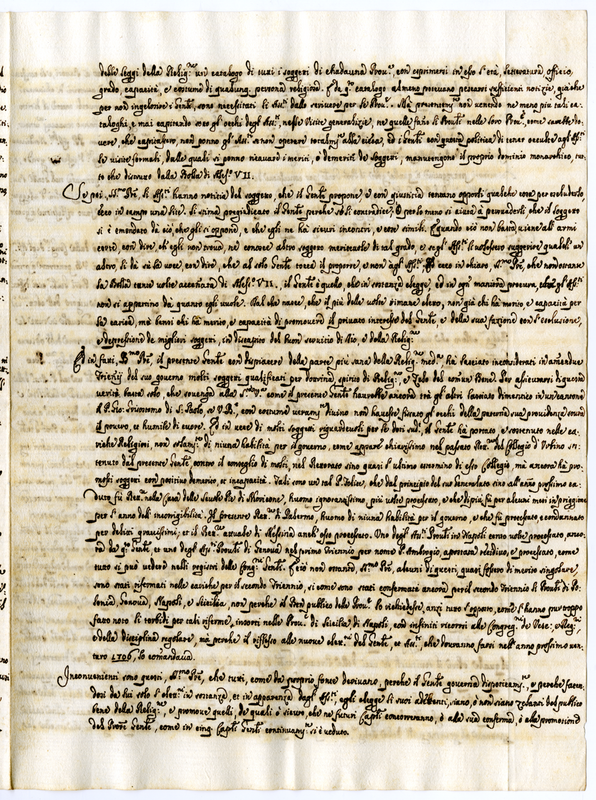 delli soggi della Relig.ne un catalogo di tutti i soggetti di chadauna Prou.a, con esprimersi in esso l'età, letteratura, officio
grado, capacità, e costumi di qualunq. persona religiosa. E da q.o catalogo almeno potevano pescarsi sufficienti notizie, già che
per non ingelosire i Gen.li, sono necessitati li Ass.ti dallo scrivere per le Prou.e. Ma
taloghi, e mai capitando sotto gli occhi degl'Ass.ti, nelle Visite generalizie, ne quelle fatte da Prou.li nelle loro Prou.e, come sarebbe do-
uere, che capitassero, non ponno gli Ass.ti non operare totalm.te alla cieca, ed i Gen.li con questa politica di tener occulte agl'Ass.ti
le visite formate, dalle quali si ponno ricavare i meriti, o demeriti de Soggetti, mantengono il proprio dominio monarchico, tut-
to che distrutto dalla Bolla di Aless.o VII.
Se poi, S.mo Pre, li Ass.ti hanno notizie del soggetto, che il Gen.le propone, e con giustizia tentano opporli qualche cosa per escluderlo,
ecco in campo una lite. Si stima pregiudicato il Gen.le perche se li contradice; O per lo meno si aiuta a persuaderli, che il soggetto
si è emendato da ciò, che gli si oppone, e che egli ne ha sicuri incontri, e cose simili. E quando ciò non basta, viene all'armi
corte, con dire, ch'egli non trova, ne conosce altro soggetto meritevole di tal grado, e se gl'Ass.ti li volessero suggerire qualch'un
altro, li dà sù la voce, con dire, che al solo Gen.le tocca il proporre, e non agl'Ass.ti. Ed ecco in chiaro, S.mo Pre, che nonostante
la Bolla tante volte accennata di Aless.o VII, il Gen.le è quello, che in sostanza elegge, ed in ogni maniera procura, che gl'Ass.ti
non si appartino da quanto egli vuole. Dal che nasce, che il più delle volte rimane eletto, non già chi ha merito e capacità per
la carica, mà bensi chi hà merito, e capacità di promovere il privato interesse del Gen.le, e della sua fazione con l'esclusione,
e depressione de migliori soggetti, in discapito del buon servitio di Dio, e della Relig.ne
Et in fatti, S.mo Pre, il presente Gen.le con dispiacere della parte più sana della Relig.ne med.ma hà lasciato inconsiderati in amendue
Trienij del suo governo molti soggetti qualificati per dottrina, spirito di Relig.ne, e Zelo del comun Bene. Per assicurarsi di questa
verità basta solo, che sovenga alla S.tà V.ra come il presente Gen.le havrebbe ancora trà gli altri lasciato dimentico in un cantone
il P. Gio: Grisostomo di S. Paolo, se V. B.ne, con costume veram.te divino non havesse fissato gli occhi della paterna sua providenza verso
il povero, et humile di cuore. Et in vece di molti soggetti riguardevoli per le doti sudd.e, il Gen.le hà portato, e sostenuto nelle ca-
riche Religiosi, non solam.te di niuna habilità per il governo, come appare chiarissimo nel passato Ret.re del Collegio d'Urbino so-
stenuto dal presente Gen.le contro il consiglio di molti, nel Rettorato sino quasi l'ultimo esterminio di esso Collegio, mà ancora hà pro-
mossi soggetti con positivo demerito, et incapacità. Tali sono un tal P. Felice, che dal principio del suo Generalato sino all'anno prossimo ca-
duto fù Ret.re nella Casa delle Scuole Pie di Moricone, huomo ignorantissimo, più volte processato, e che dippiù fù per alcuni mesi in priggione
per l'anno della incorrigibilità. Il presente Ret.re di Palermo, huomo di niuna habilità per il governo, e che fù processato e condannato
per delitti gravissimi; et il Ret.re attuale di Messina anch'esso processato. Uno degl'Ass.ti Prou.li in Napoli cento volte processato, anco-
ra da q.i Gen.li, et uno degl'Ass.ti Prou.li di Genova nel primo triennio per nome P. Ambrogio, apostata recidivo, e processato, come
tutto si può vedere nelli registri della Cong.ne Gen.le. E però non ostante, S.mo Pre, alcuni di questi quasi fossero di merito singolare,
sono stati rifermati nelle cariche per il secondo Triennio, si come sono stati confermati ancora per il secondo triennio li Prou.li di Po-
lonia, Genova, Napoli, e Sicilia, non perche il Ben publico delle Prou.e lo richiedesse, anzi tutto l'opposto, come l'hanno pur troppo
fatto noto li torbidi per tali riferme, insorti nelle Prou.e di Sicilia, di Napoli, con infiniti ricorsi alle Congreg.ni de Vesc.i e Reg.ri
e della disciplina regolare, mà perche il riflesso alle nuove elez.ni del Gen.le, et Ass.ti, che dovranno farsi nell'anno prossimo ven-
turo 1706, lo comandava.
Inconvenienti sono questi, S.mo Pre, che tutti, come da proprio fonte derivano, perche il Gen.le governa dispoticam.te, e perche facen-
dosi da lui solo l'elez.ni in sostanza, et in apparenza dagl'Ass.ti egli elegge li suoi aderenti, siano, ò non siano zelanti del publico
bene della Relig.ne, e promove quelli, de quali è sicuro, che ne futuri Capli concorreranno, ò alla sua conferma, ò alla promotione
del Proc.re Gen.le, come in cinq. Capli Gen.li continuam.te si è veduto.